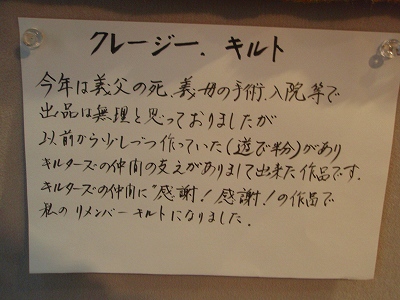 クレージー.キルト
今年は義父の死、義母の手術、入院等で
出品は無理と思っておりましたが
以前から少しづつ作っていた(遊び半分)があり
キルターズの仲間の支えがありまして出来た作品です.
キルターズの仲間に"感謝!感謝!の作品で
私のリメンバーキルトになりました.